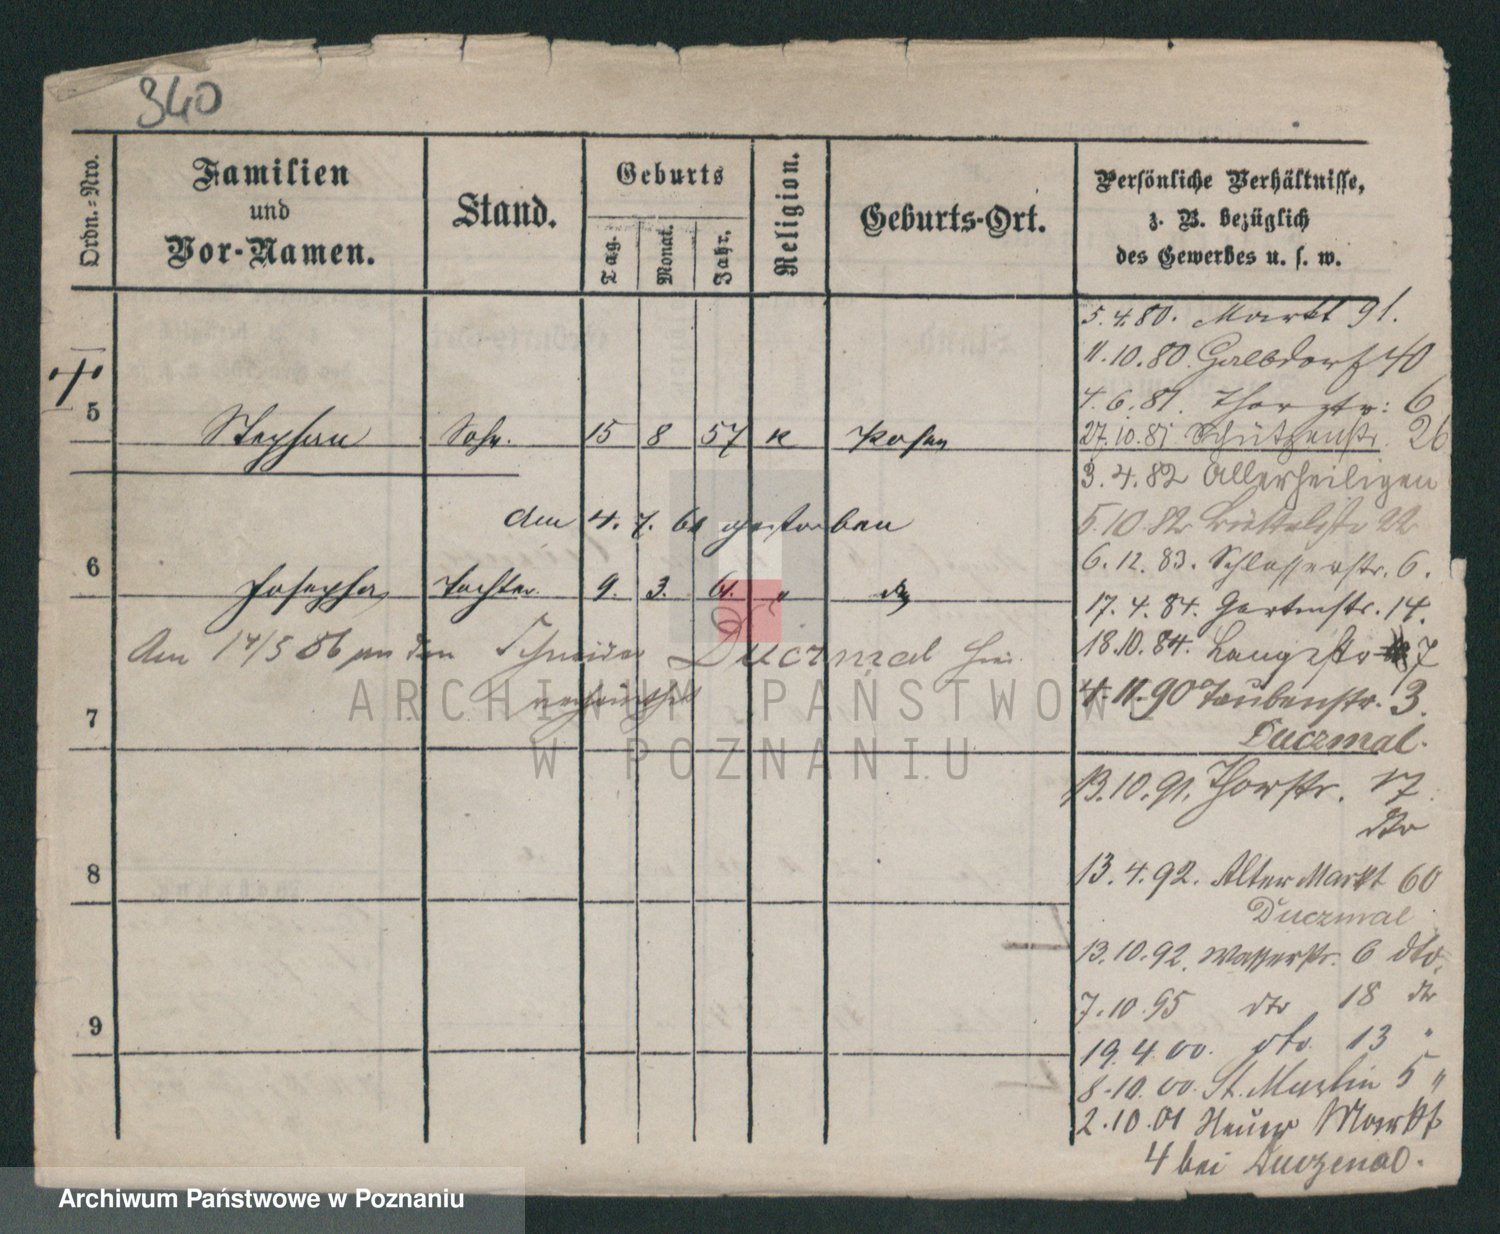 340
Ordn.-Nro.
Familien
und
Vor-Namen.
Stand.
Geburts
Tag.
Monat.
Jahr.
Religion.
Geburts-Ort.
Persönliche Verhältnisse,
z. B. bezüglich
des Gewerbes u. s. w.
5.4.80. Markt 91.
11.10.80. 40
4.6.81. Thorstr: 6
27.10.81 Schützenstr. 26
3.4.82 Allerheiligen
5.10.82 Büttelstr 22
6.12.83. Schlosserstr. 6.
17.4.84. Gartenstr. 14.
18.10.84. Langestr 7
4.11.90 Taubenstr. 3.
Duczmal.
13.10.91. Thorstr. 17
dto
13.4.92. Alter Markt 60
Duczmal
13.10.92. Wasserstr. 6 dto.
7.10.95 dto 18 dto
19.4.00. dto. 13 "
8.10.00. St. Martin 5 "
2.10.01 Neuer Markt
4 bei Duczmal.
5 Stephan Sohn. 15 8 57 k Posen
am 4. 7. 61 gestorben
6 Josepha Tochter 9. 3. 61. " do
Am 17/5 86 an den Schneider Duczmal hier
verheirathet
7
8
9
ARCHIWUM PAŃSTWOWE
W POZNANIU
Archiwum Państwowe w Poznaniu